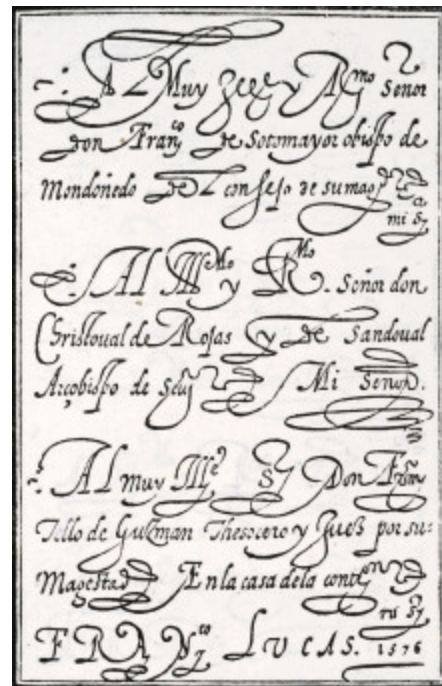 AL Muy Yllᵉ y Rᵐᵒ Señor
don Franᶜᵒ de Sotomayor obispo de
Mondoñedo del consejo de su mag
mi Sʳ
Al Illᵐᵒ y Rᵐᵒ. señor don
Christoual de Rojas y de Sandoual
Arçobispo de Seuᵃ Mi Señor.
Al muy Illᵉ Sʳ Don Franᶜᵒ
Tello de Guzman Thesorero y Juez por su
Magestad En la casa de la contʳᵒⁿ
mi Sʳ
FRANᶜᵒ LUCAS. 1576